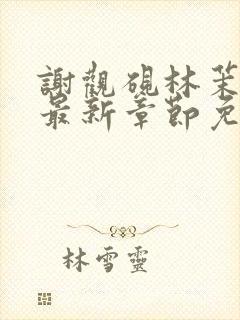 謝觀硯林茉
最新章節免
林雪靈